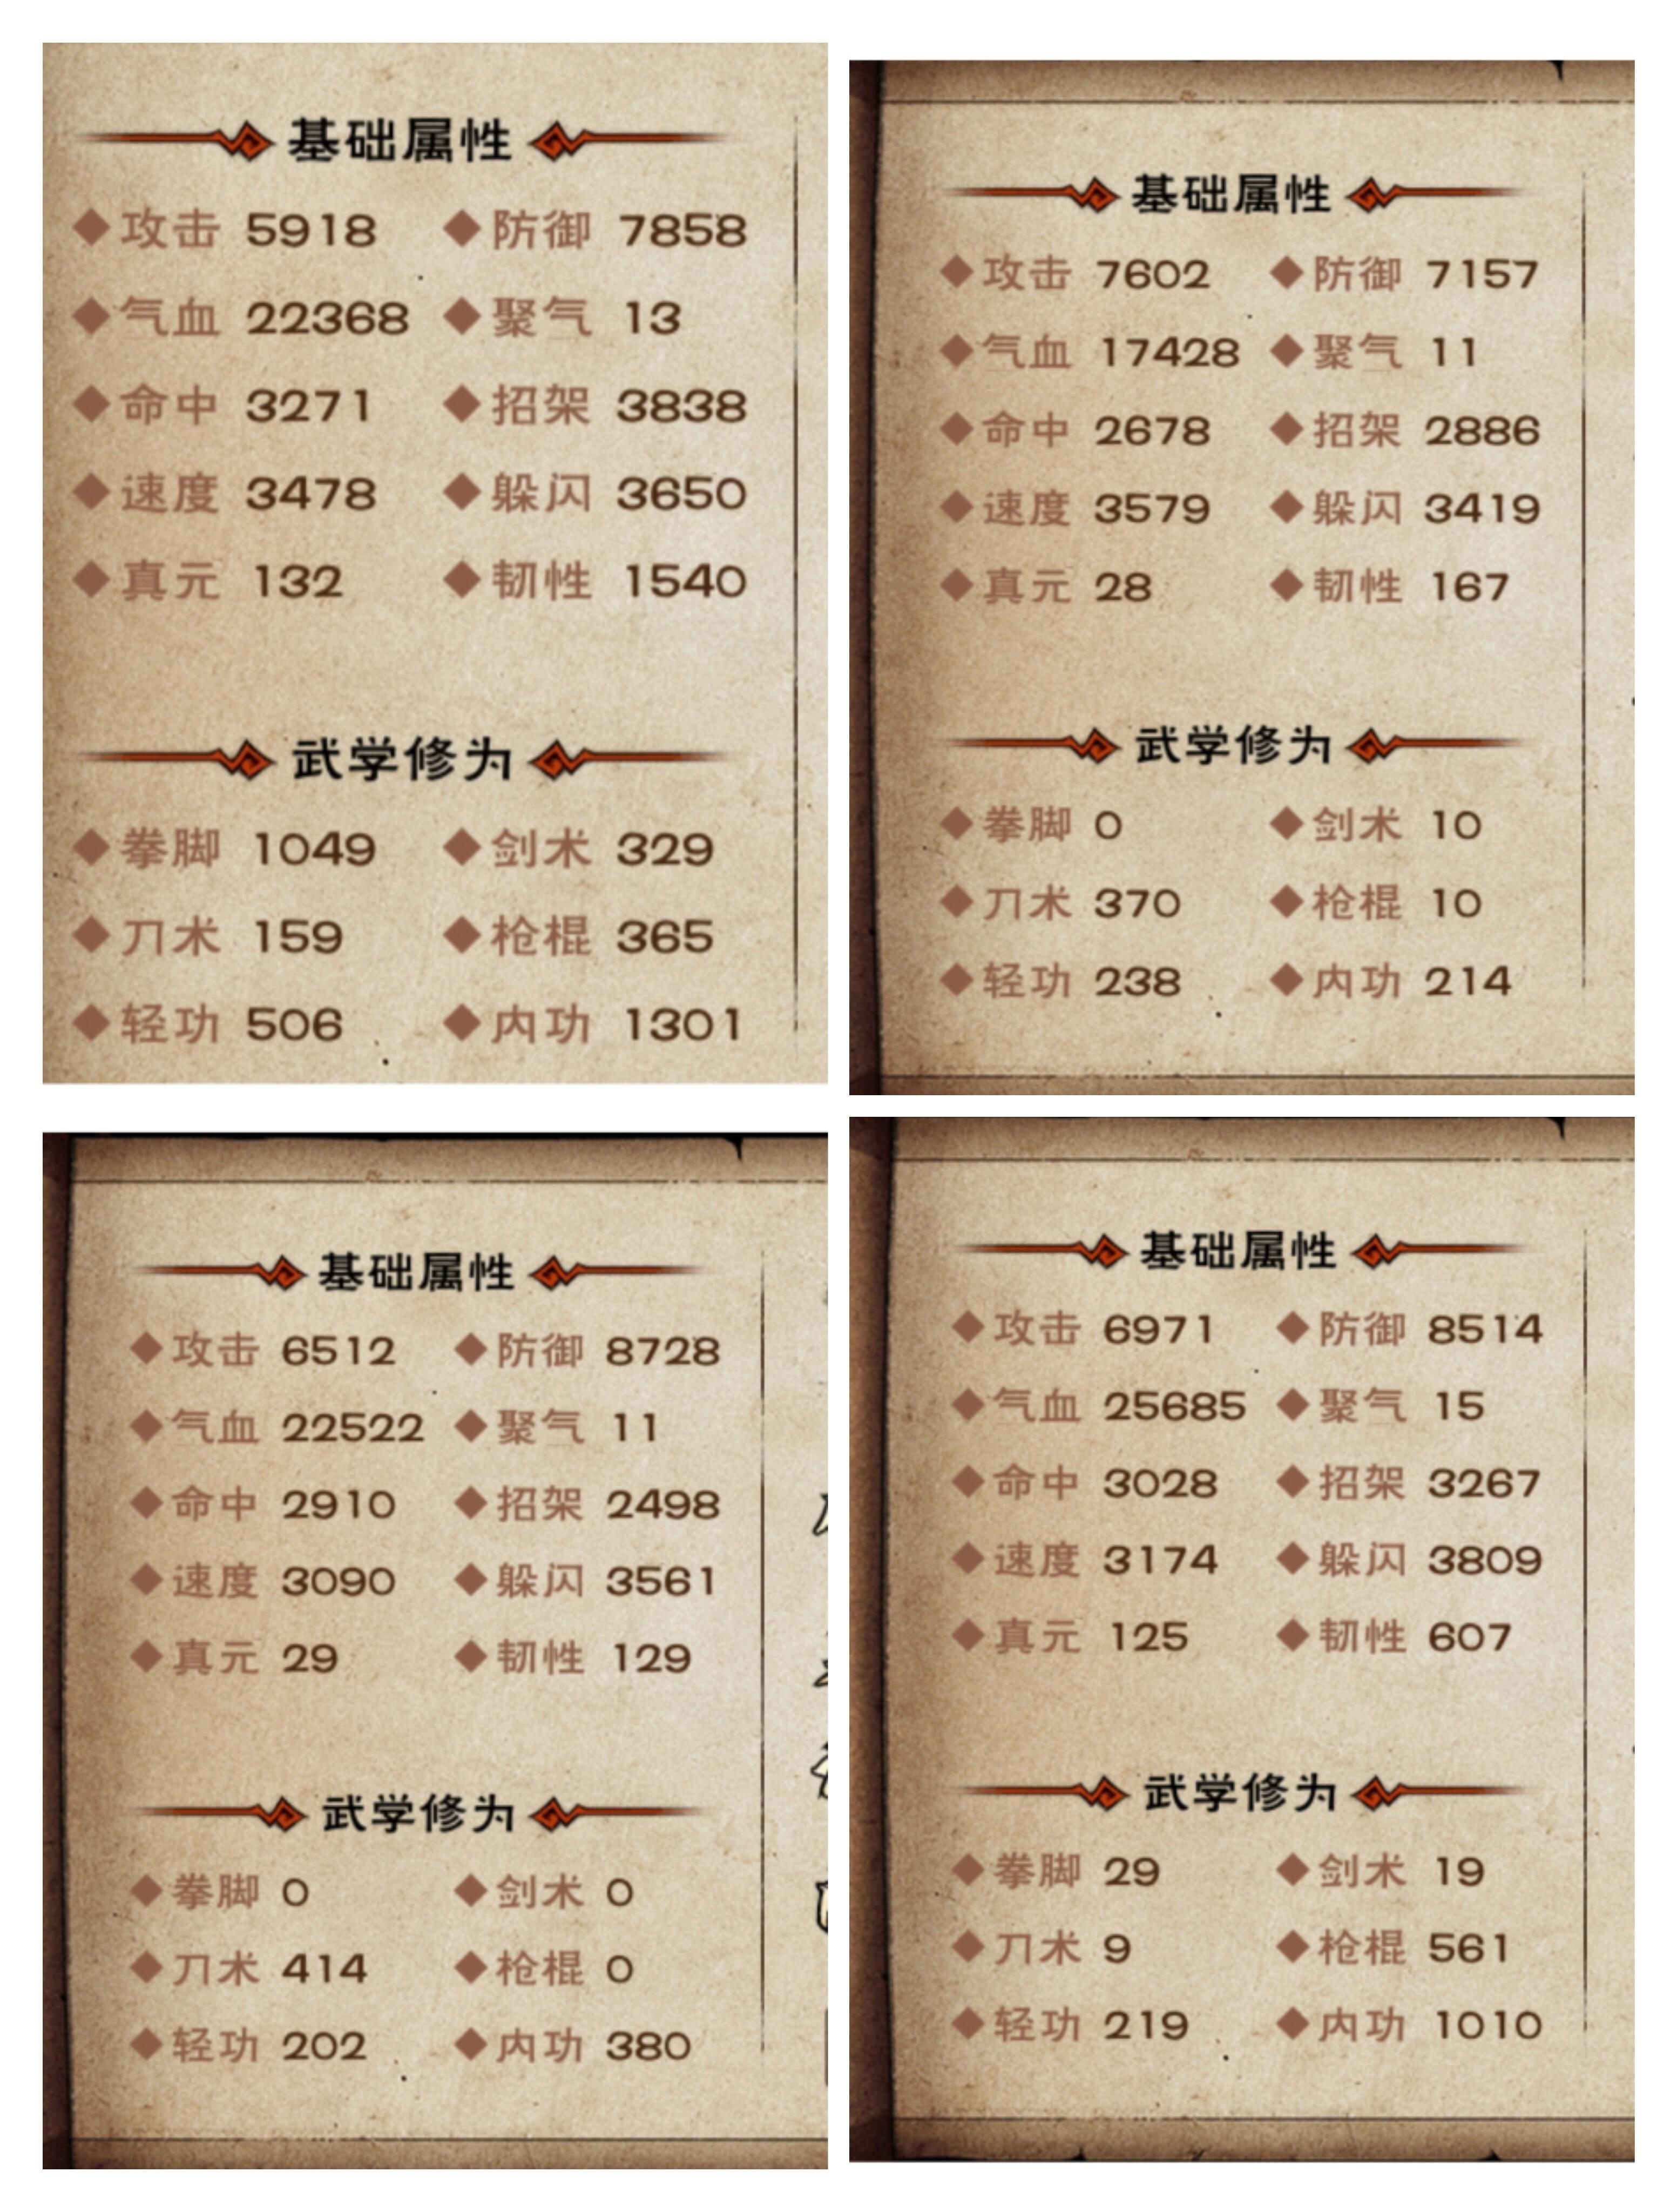 基础属性
攻击 5918 防御 7858
气血 22368 聚气 13
命中 3271 招架 3838
速度 3478 躲闪 3650
真元 132 韧性 1540
武学修为
拳脚 1049 剑术 329
刀术 159 枪棍 365
轻功 506 内功 1301
基础属性
攻击 7602 防御 7157
气血 17428 聚气 11
命中 2678 招架 2886
速度 3579 躲闪 3419
真元 28 韧性 167
武学修为
拳脚 0 剑术 10
刀术 370 枪棍 10
轻功 238 内功 214
基础属性
攻击 6512 防御 8728
气血 22522 聚气 11
命中 2910 招架 2498
速度 3090 躲闪 3561
真元 29 韧性 129
武学修为
拳脚 0 剑术 0
刀术 414 枪棍 0
轻功 202 内功 380
基础属性
攻击 6971 防御 8514
气血 25685 聚气 15
命中 3028 招架 3267
速度 3174 躲闪 3809
真元 125 韧性 607
武学修为
拳脚 29 剑术 19
刀术 9 枪棍 561
轻功 219 内功 1010